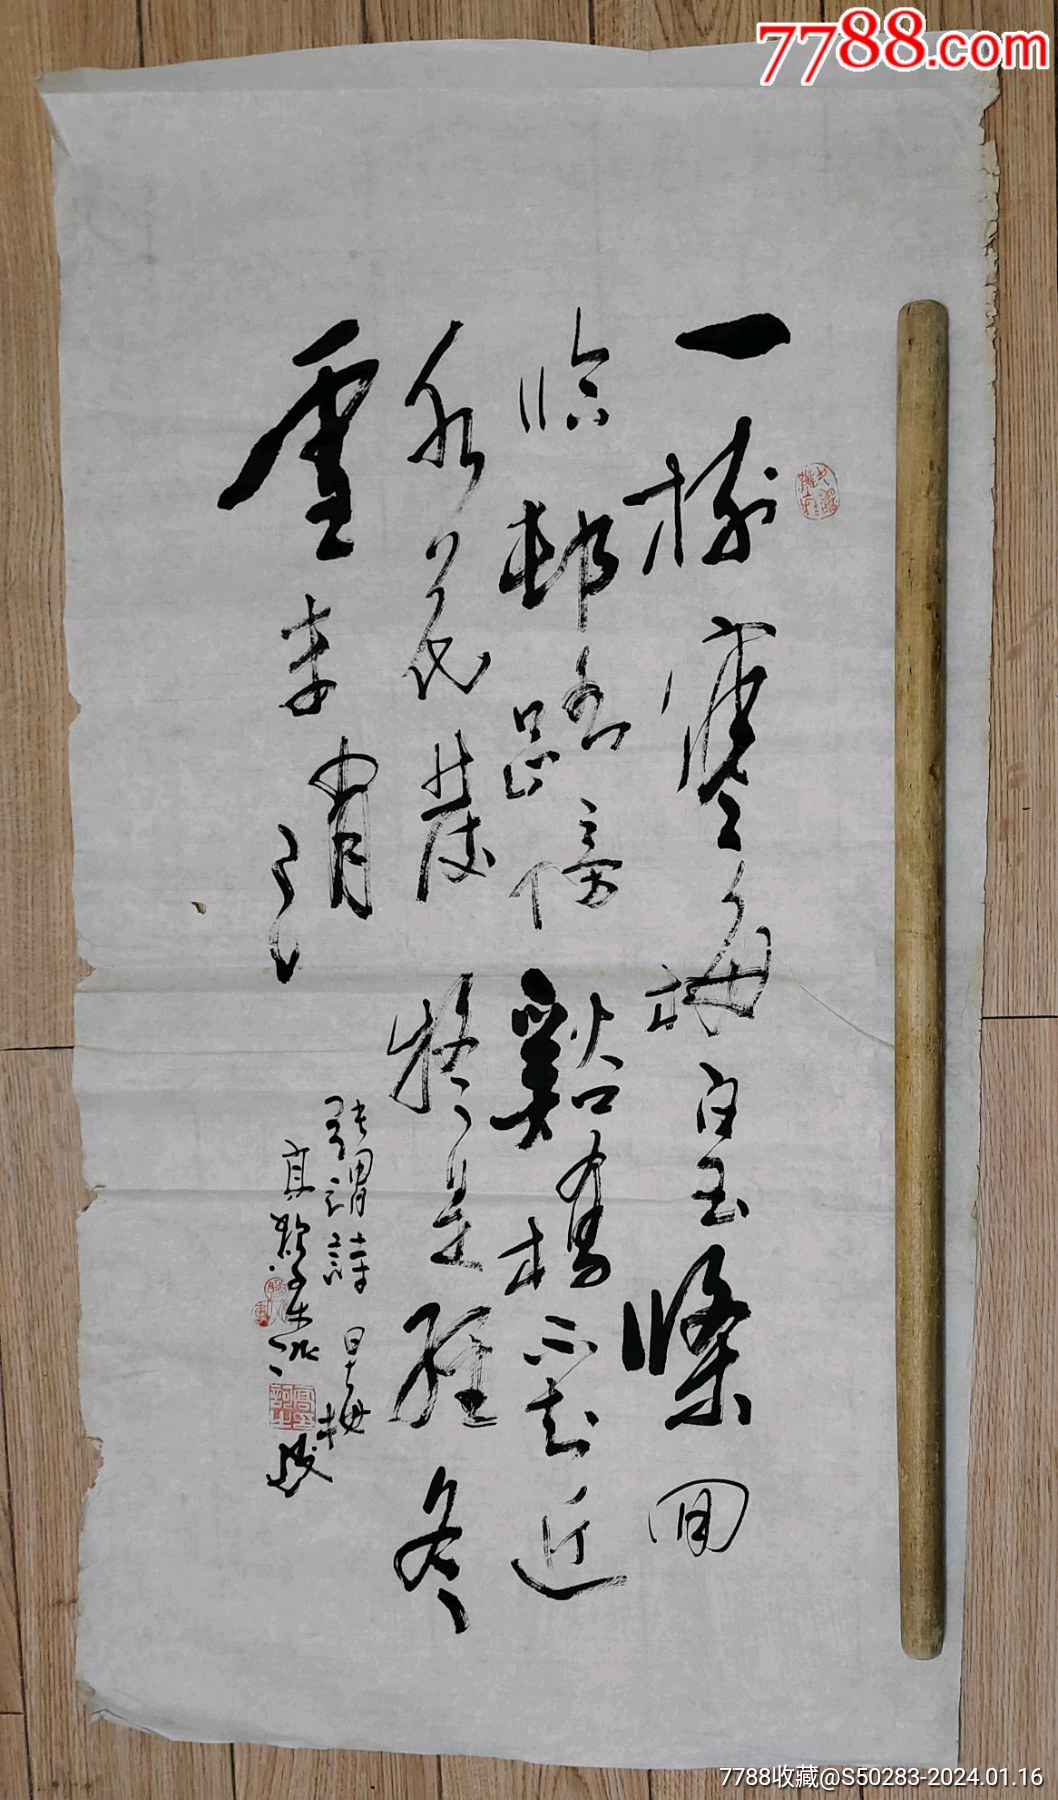 7788.com
一樹寒梅白玉條回
臨邨路傍谿橋不知近
水花發疑是經冬
雪未消
張謂詩 早梅
7788收藏@S50283-2024.01.16